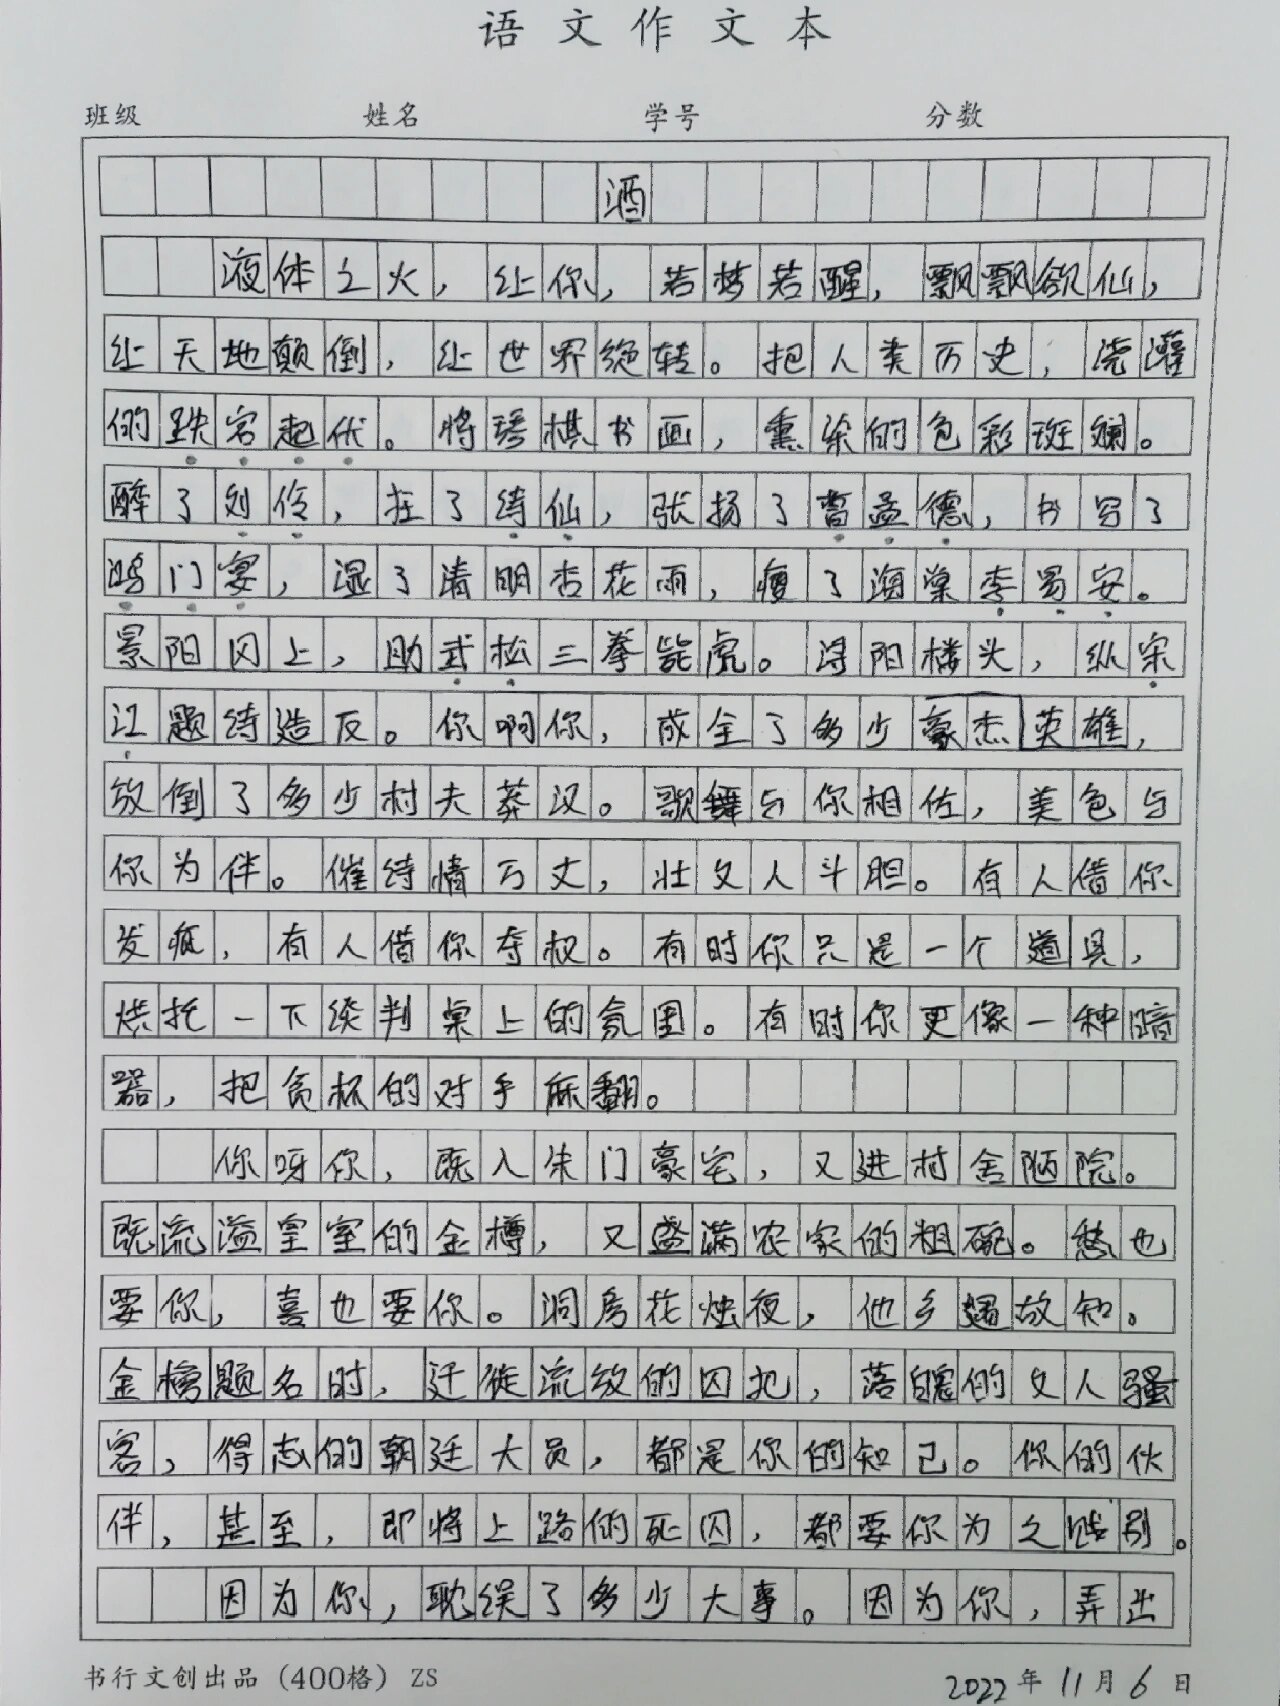 语文作文本
班级 姓名 学号 分数
酒
液体之火，让你，若梦若醒，飘飘欲仙，
让天地颠倒，让世界绝转。把人类历史，浇灌
的跌宕起伏。将琴棋书画，熏染的色彩斑斓。
醉了刘伶，狂了诗仙，张扬了曹孟德，书写了
鸿门宴，湿了清明杏花雨，瘦了海棠李易安。
景阳冈上，助武松三拳毙虎。浔阳楼头，纵宋
江题诗造反。你啊你，成全了多少豪杰英雄，
放倒了多少村夫莽汉。歌舞与你相佐，美色与
你为伴。催诗情万丈，壮文人斗胆。有人借你
发疯，有人借你夺权。有时你只是一个道具，
烘托一下谈判桌上的氛围。有时你更像一种暗
器，把贪杯的对手麻翻。
你呀你，既入朱门豪宅，又进村舍陋院。
既流溢皇室的金樽，又盛满农家的粗碗。愁也
要你，喜也要你。洞房花烛夜，他乡遇故知。
金榜题名时，迁徙流放的囚犯，落魄的文人骚
客，得志的朝廷大员，都是你的知己。你的伙
伴，甚至，即将上路的死囚，都要你为之践别。
因为你，耽误了多少大事。因为你，弄出
书行文创出品（400格）ZS 2022年11月6日